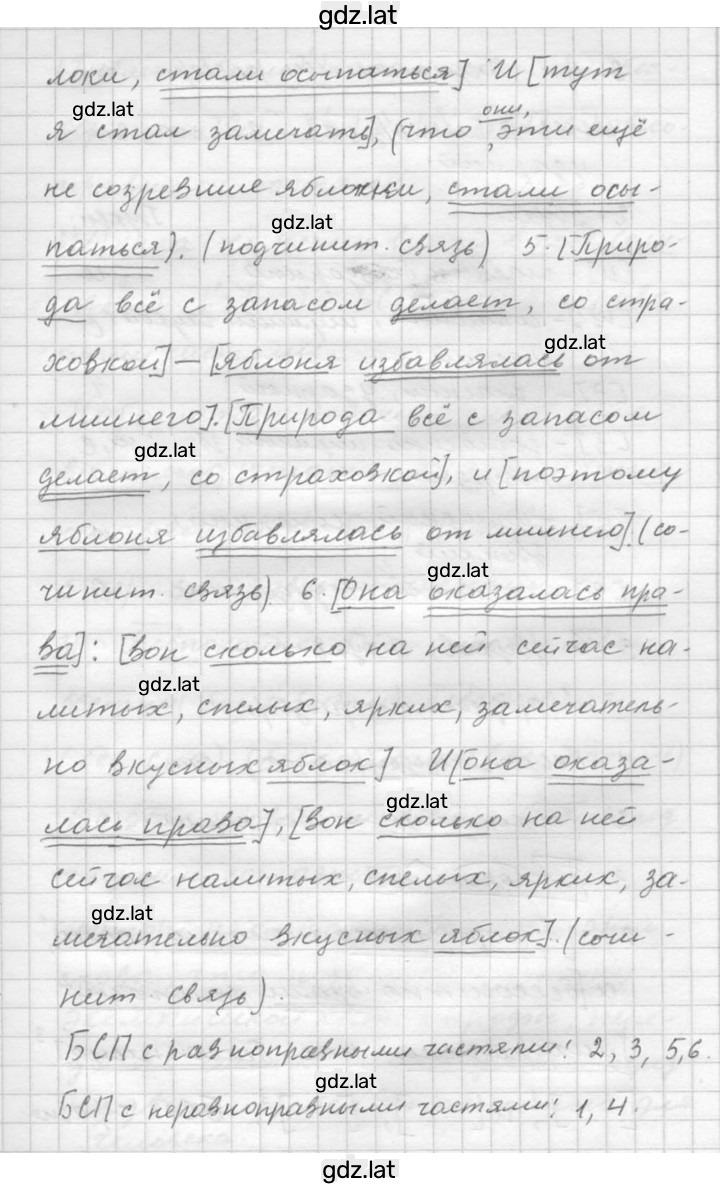 gdz.lat
локи, стали осыпаться] И [тут
gdz.lat
они,
я стал замечать], (что эти ещё
не созревшие яблоки, стали осы-
gdz.lat
паться). (подчинит. связь) 5. [Приро-
да всё с запасом делает, со стра-
gdz.lat
ховкой] — [яблоня избавлялась от
лишнего]. [Природа всё с запасом
gdz.lat
делает, со страховкой], и [поэтому
яблоня избавлялась от лишнего]. (со-
gdz.lat
чинит. связь) 6. [Она оказалась пра-
ва]: [вон сколько на ней сейчас на-
gdz.lat
литых, спелых, ярких, замечатель-
но вкусных яблок] И [она оказа-
gdz.lat
лась права], [вон сколько на ней
сейчас налитых, спелых, ярких, за-
gdz.lat
мечательно вкусных яблок]. (сочи-
нит связь).
БСП с равноправными частями: 2, 3, 5, 6.
gdz.lat
БСП с неравноправными частями: 1, 4.
gdz.lat